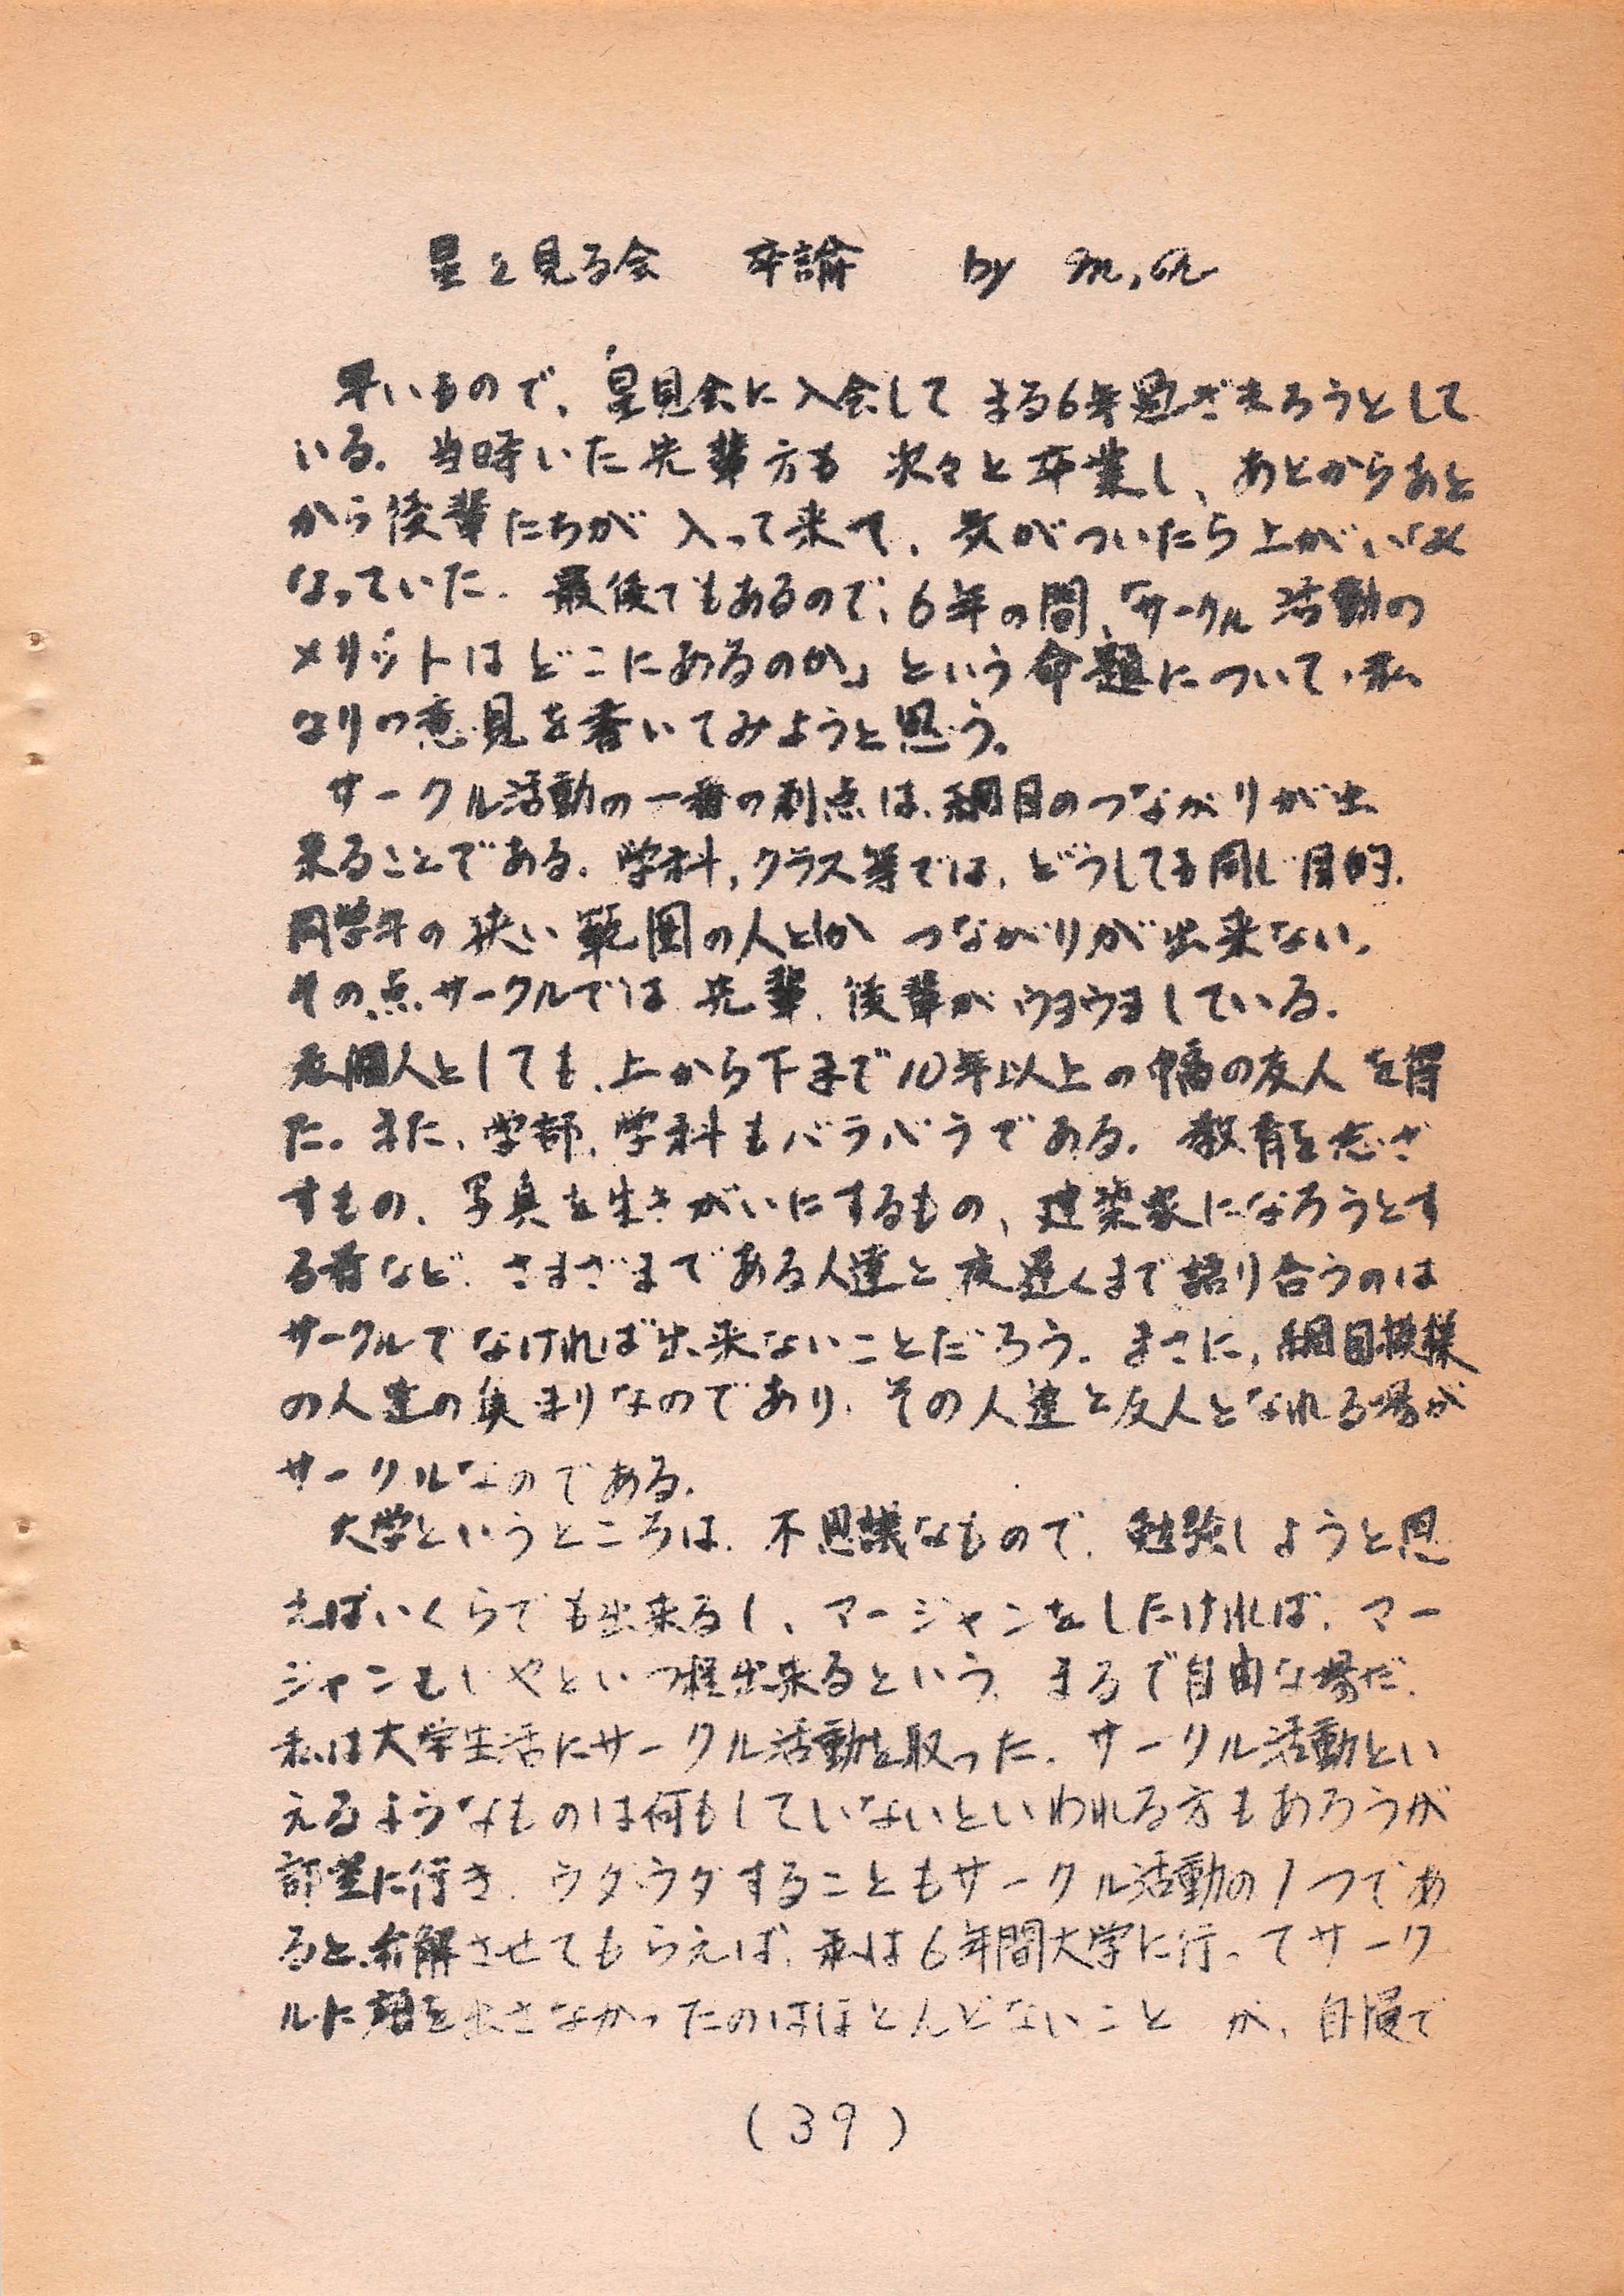 星を見る会　卒論　by m.a
早いもので、星見会に入会して まる6年過ぎ去ろうとして
いる。当時いた先輩方も 次々と卒業し、あとからあと
から後輩たちが 入って来て、気がついたら上がいなく
なっていた。最後でもあるので、6年の間、「サークル 活動の
メリットは どこにあるのか」という命題について、私
なりの意見を書いてみようと思う。
サークル活動の一番の利点は、網目のつながりが出
来ることである。学科,クラス等では、どうしても同じ目的、
同学年の狭い範囲の人としか つながりが出来ない。
その点サークルでは 先輩、後輩がウヨウヨしている。
私個人としても、上から下まで10年以上の幅の友人を得
た。また、学部、学科もバラバラである。教育を志ざ
すもの、写真を生きがいにするもの、建築家になろうとす
る者など、さまざまである人達と夜遅くまで語り合うのは
サークルでなければ出来ないことだろう。まさに,網目模様
の人達の集まりなのであり、その人達と友人となれる場が
サークルなのである。
大学というところは、不思議なもので、勉強しようと思
えばいくらでも出来るし、マージャンをしたければ、マー
ジャンもいやという程出来るという、まるで自由な場だ。
私は大学生活にサークル活動を取った。サークル活動とい
えるようなものは何もしていないといわれる方もあろうが
部室に行き、ウダウダすることもサークル活動の1つであ
ると、弁解させてもらえば、私は6年間大学に行ってサーク
ルに顔を出さなかったのはほとんどないこと が、自慢で
(39)